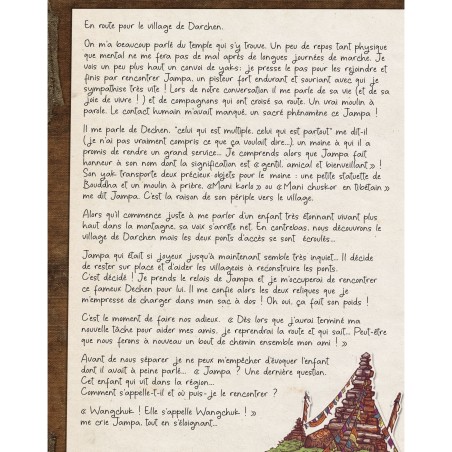 En route pour le village de Darchen.
On m'a beaucoup parlé du temple qui s'y trouve. Un peu de repos tant physique
que mental ne me fera pas de mal après de longues journées de marche. Je
vois un peu plus haut un convoi de yaks; je presse le pas pour les rejoindre et
finis par rencontrer Jampa, un pisteur fort endurant et souriant avec qui je
sympathise très vite ! Lors de notre conversation il me parle de sa vie (et de sa
joie de vivre ! ) et de compagnons qui ont croisé sa route. Un vrai moulin à
parole. Le contact humain m'avait manqué, un sacré phénomène ce Jampa !
Il me parle de Dechen, "celui qui est multiple, celui qui est partout" me dit-il
(je n'ai pas vraiment compris ce que ça voulait dire...), un moine à qui il a
promis de rendre un grand service... Je comprends alors que Jampa fait
honneur à son nom dont la signification est « gentil, amical et bienveillant » !
Son yak transporte deux précieux objets pour le moine : une petite statuette de
Bouddha et un moulin à prière, « Mani korlo » ou « Mani chuskor en tibétain »
me dit Jampa. C'est la raison de son périple vers le village.
Alors qu'il commence juste à me parler d'un enfant très étonnant vivant plus
haut dans la montagne, sa voix s'arrête net. En contrebas, nous découvrons le
village de Darchen mais les deux ponts d'accès se sont écroulés...
Jampa qui était si joyeux jusqu'à maintenant semble très inquiet... Il décide
de rester sur place et d'aider les villageois à reconstruire les ponts.
C'est décidé ! Je prends le relais de Jampa et je m'occuperai de rencontrer
ce fameux Dechen pour lui. Il me confie alors les deux reliques que je
m'empresse de charger dans mon sac à dos ! Oh oui, ça fait son poids !
C'est le moment de faire nos adieux. « Dès lors que j'aurai terminé ma
nouvelle tâche pour aider mes amis, je reprendrai la route et qui sait... Peut-être
que nous ferons à nouveau un bout de chemin ensemble mon ami ! »
Avant de nous séparer je ne peux m'empêcher d'évoquer l'enfant
dont il avait à peine parlé... « Jampa ? Une dernière question.
Cet enfant qui vit dans la région...
Comment s'appelle-t-il et où puis-je le rencontrer ?
« Wangchuk ! Elle s'appelle Wangchuk ! »
me crie Jampa, tout en s'éloignant...